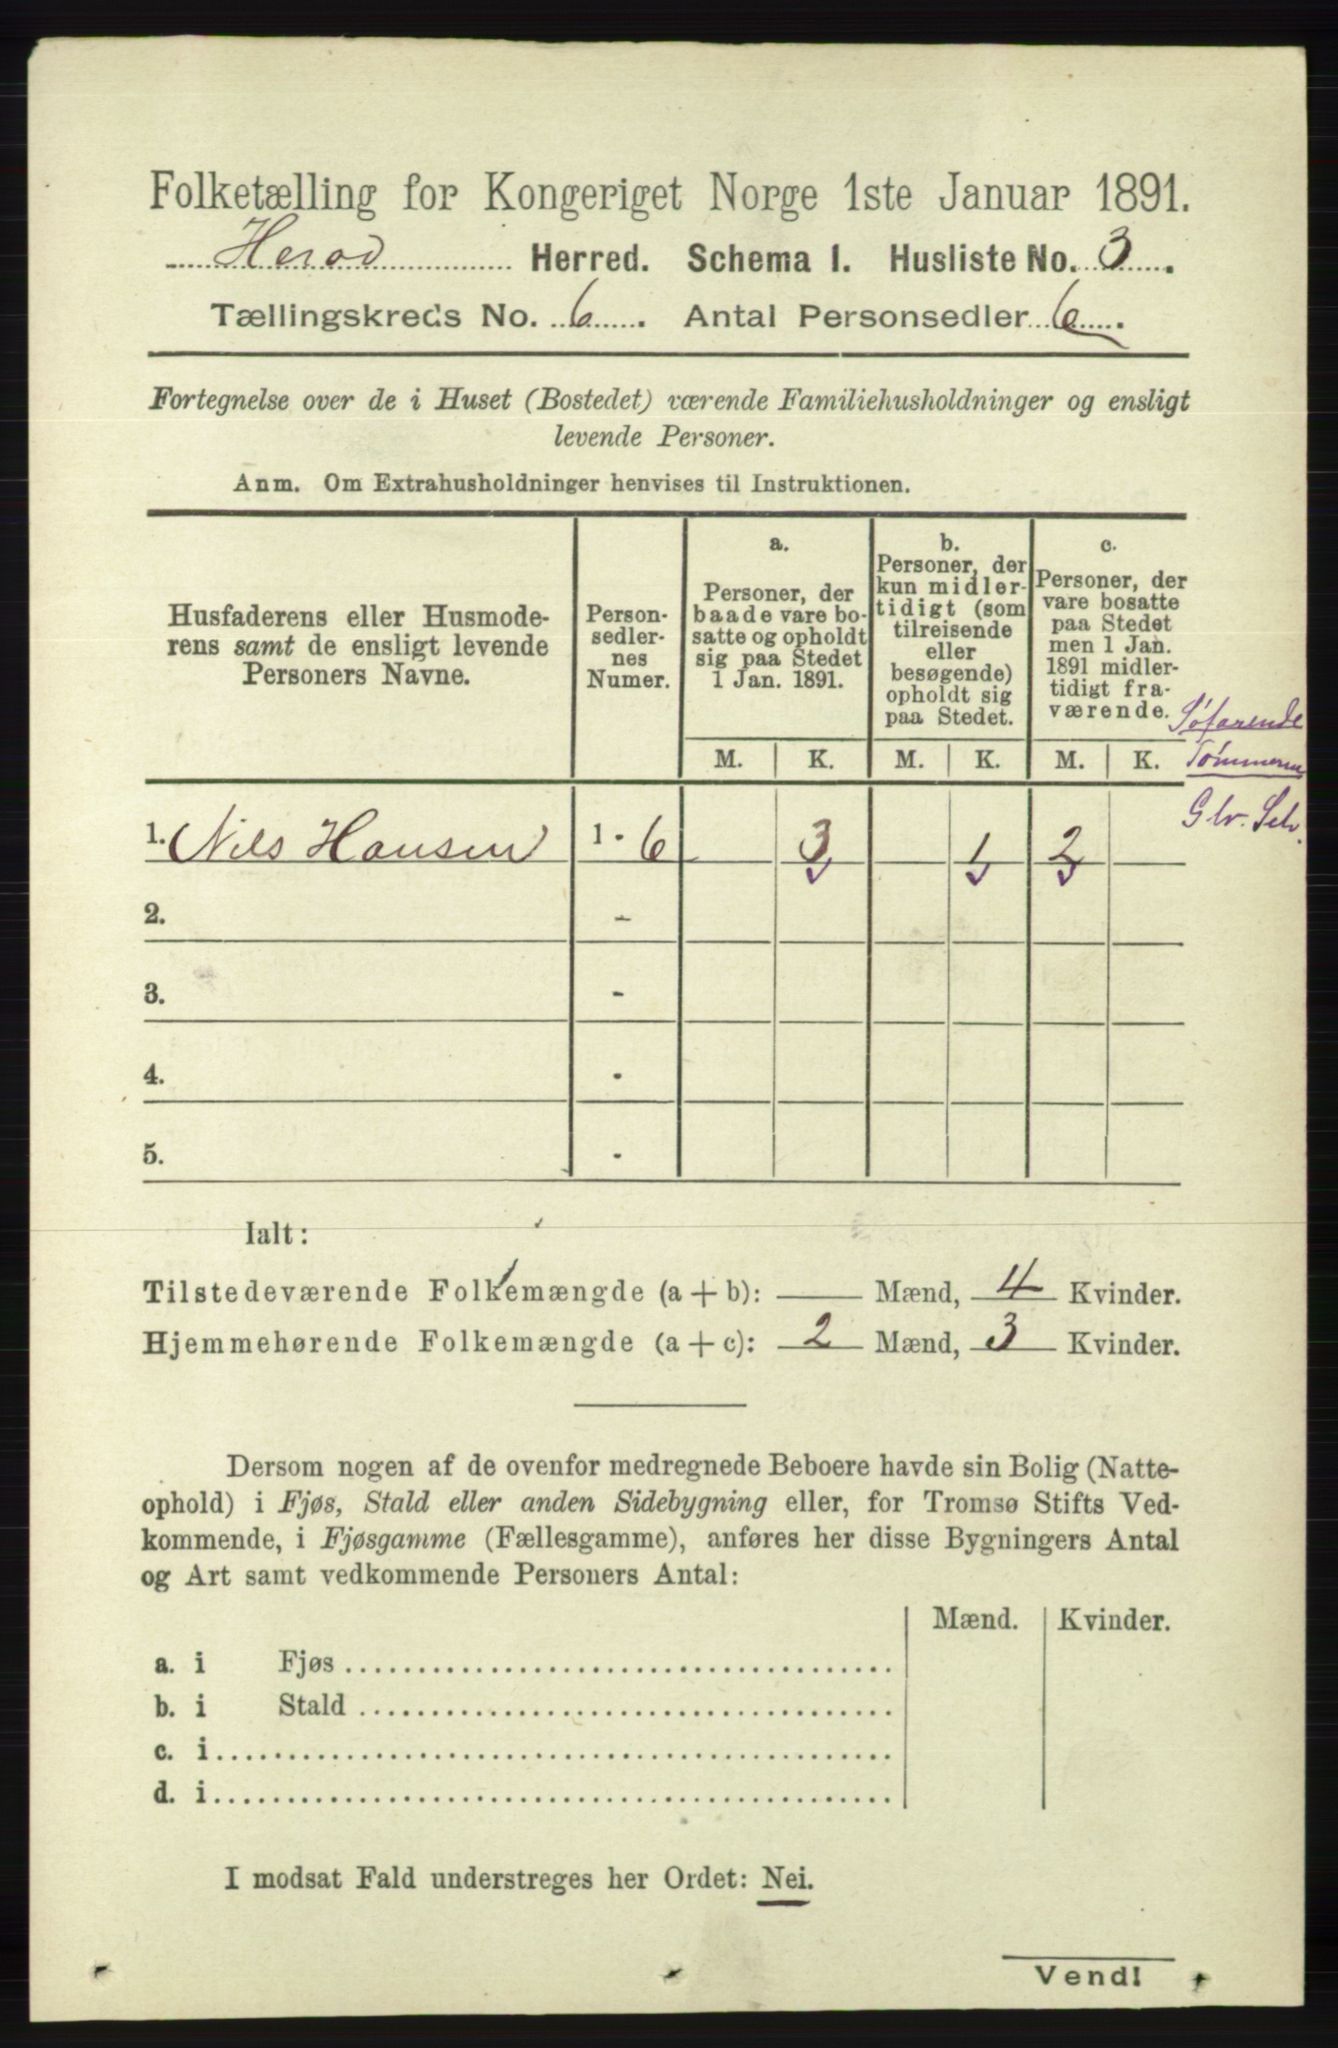 Folketælling for Kongeriget Norge 1ste Januar 1891.
Herød Herred. Schema 1. Husliste No. 3.
Tællingskreds No. 6. Antal Personsedler 6.
Fortegnelse over de i Huset (Bostedet) værende Familiehusholdninger og ensligt
levende Personer.
Anm. Om Extrahusholdninger henvises til Instruktionen.
Husfaderens eller Husmode-
rens samt de ensligt levende
Personers Navne.
Person-
sedler-
nes
Numer.
a.
Personer, der
baade vare bo-
satte og opholdt
sig paa Stedet
1 Jan. 1891.
b.
Personer, der
kun midler-
tidigt (som
tilreisende
eller
besøgende)
opholdt sig
paa Stedet.
c.
Personer, der
vare bosatte
paa Stedet
men 1 Jan.
1891 midler-
tidigt fra-
værende.
Søfarende
Tømmerm
M. K. M. K. M. K.
1. Nils Hansen 1 - 6 3 1 2
2. -
3. -
4. -
5. -
Ialt:
Tilstedeværende Folkemængde (a + b): — Mænd, 4 Kvinder.
Hjemmehørende Folkemængde (a + c): 2 Mænd, 3 Kvinder.
Dersom nogen af de ovenfor medregnede Beboere havde sin Bolig (Natte-
ophold) i Fjøs, Stald eller anden Sidebygning eller, for Tromsø Stifts Ved-
kommende, i Fjøsgamme (Fællesgamme), anføres her disse Bygningers Antal
og Art samt vedkommende Personers Antal:
Mænd. Kvinder.
a. i Fjøs
b. i Stald
c. i
d. i
I modsat Fald understreges her Ordet: Nei.
Vend!